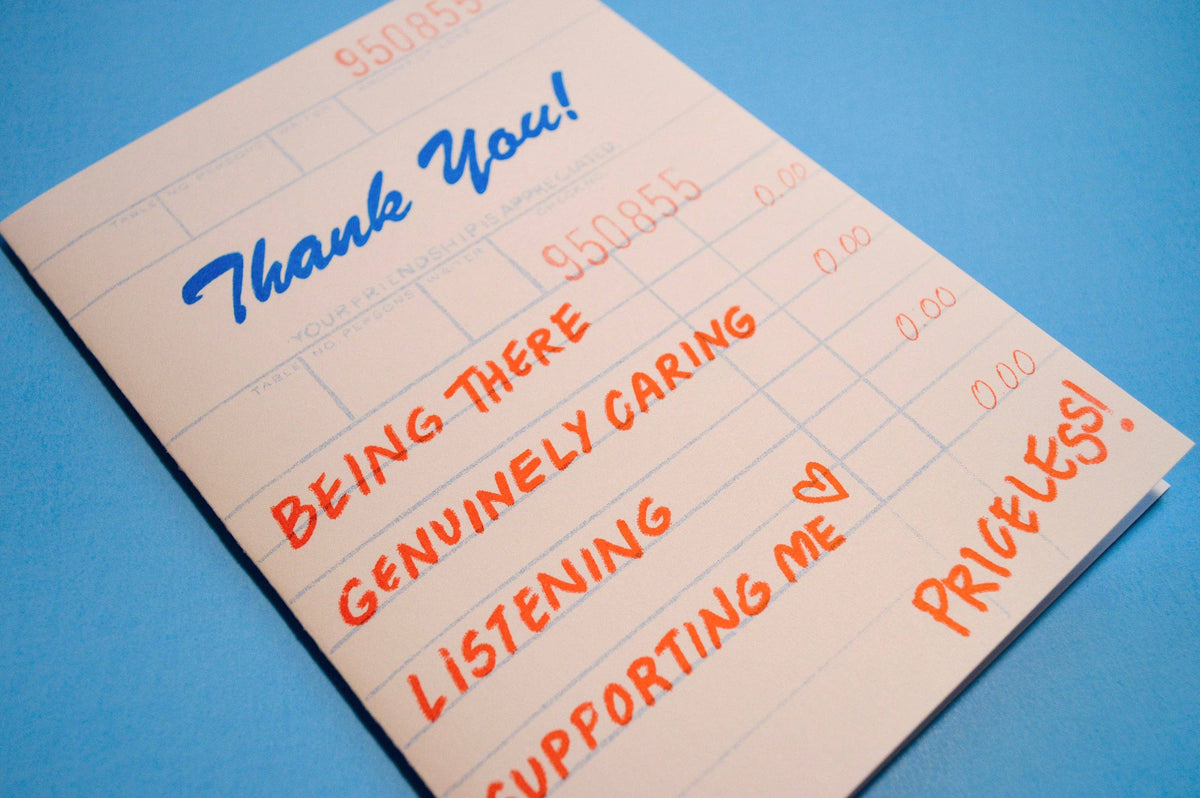 950855
TABLE NO PERSONS WAITER
Thank You!
YOUR FRIENDSHIP IS APPRECIATED
TABLE NO PERSONS WAITER CHECK NO.
950855
BEING THERE 0.00
GENUINELY CARING 0.00
LISTENING 0.00
SUPPORTING ME ♡ 0.00
PRICELESS!